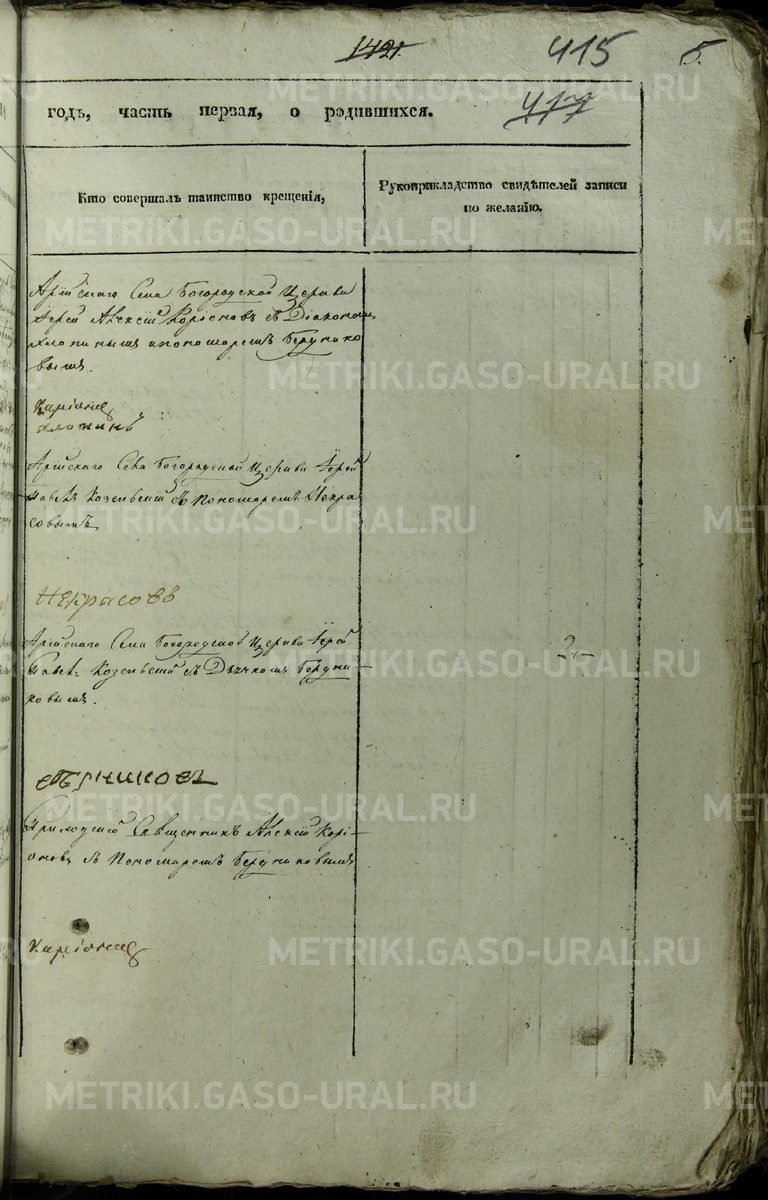 1421.
415
417
годъ, часть первая, о родившихся.
Кто совершалъ таинство крещенія,
Рукоприкладство свидѣтелей записи
по желанію.
Арійскаго Села Богородской Церкви
Іерей Алексій Каріоновъ съ Діакономъ
Хлопинымъ и пономаремъ Берчико
вымъ.
Каріоновъ
Хлопинъ
Арійскаго Села Богородской Церкви Іерей
Павелъ Козельскій съ Пономаремъ Некра
совымъ
Некрасовъ
Арійскаго Села Богородской Церкви Іерей
Павелъ Козельскій съ Дьячкомъ
ковымъ.
Приходскій Священникъ Алексій Карі-
оновъ съ Пономаремъ
Каріоновъ
METRIKI.GASO-URAL.RU